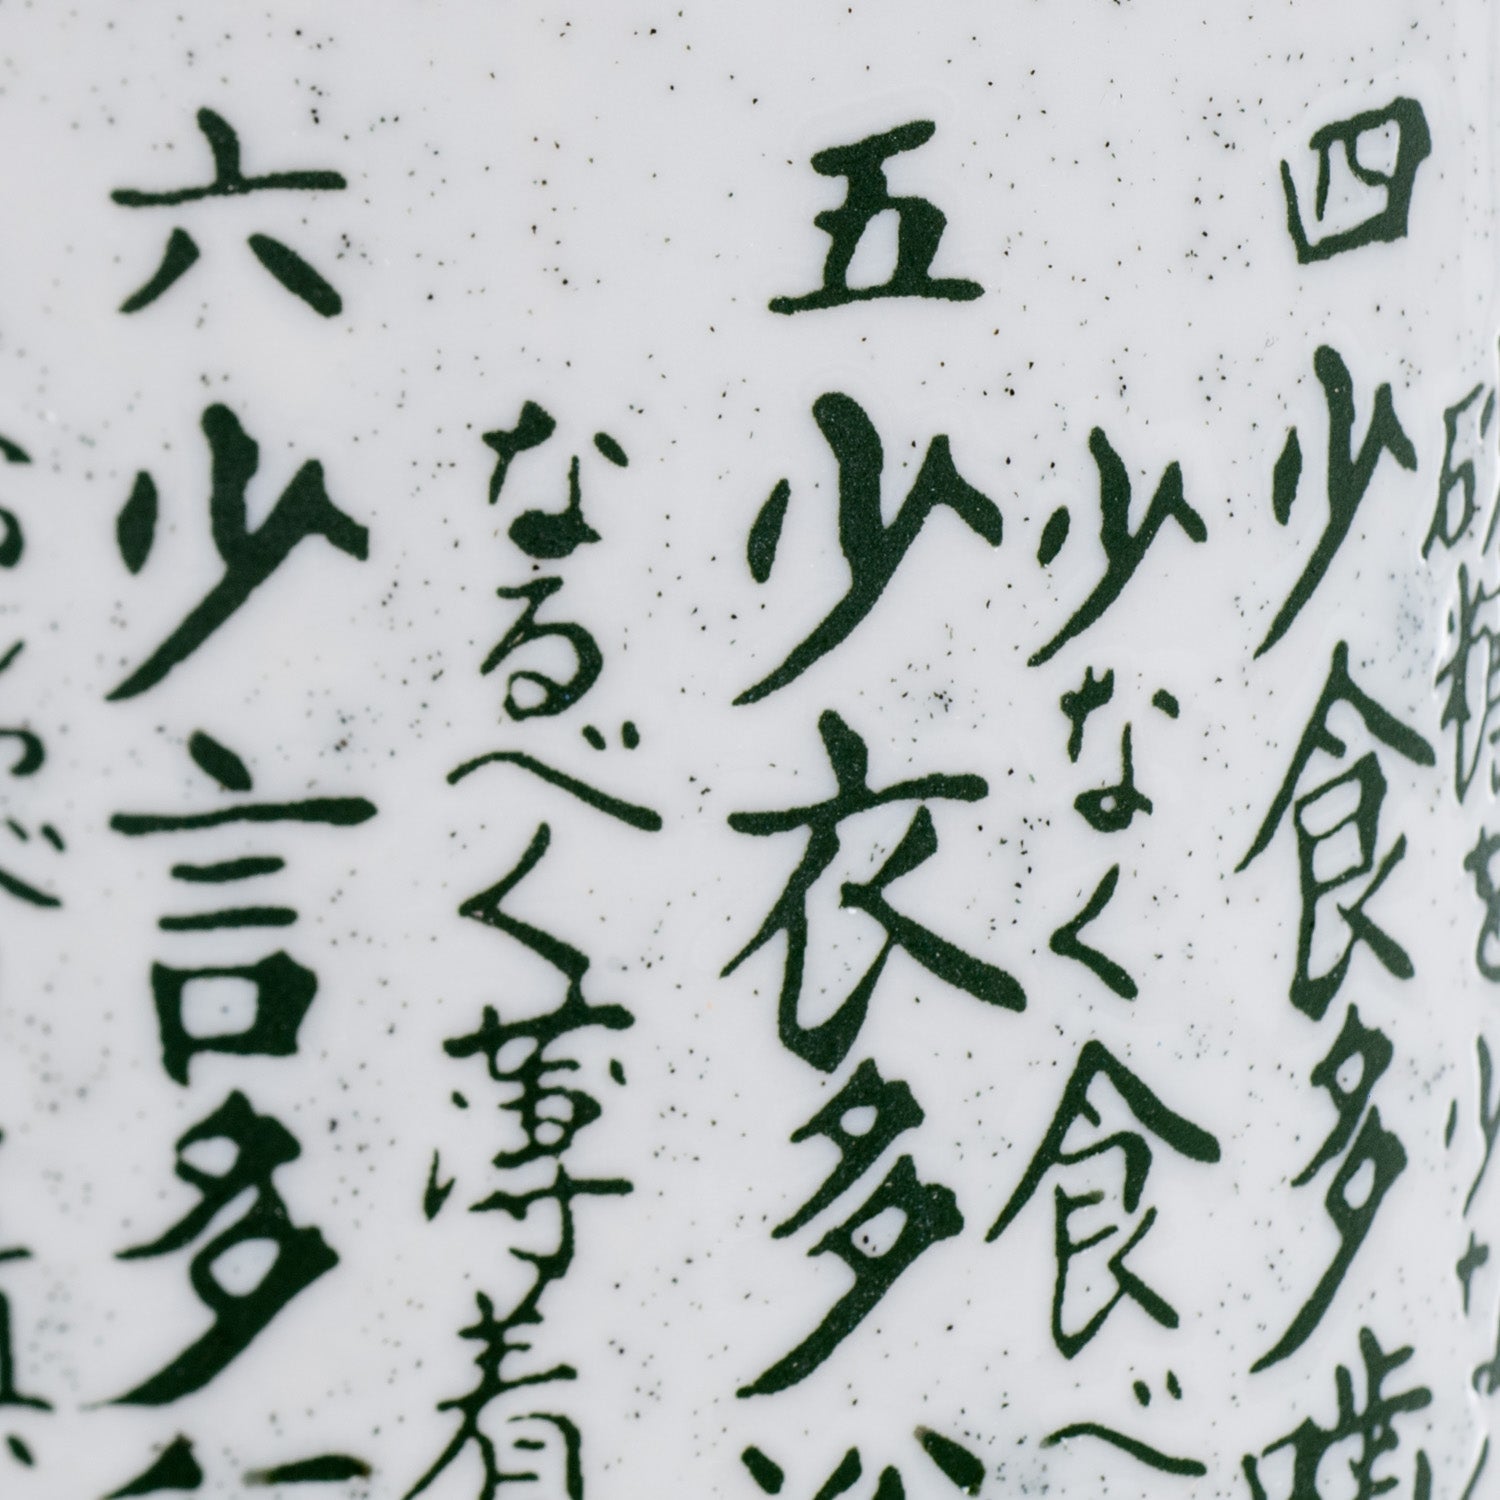 砂糖を少
四 少食多噛
少なく食べ
五 少衣多浴
なるべく薄着
六 少言多行